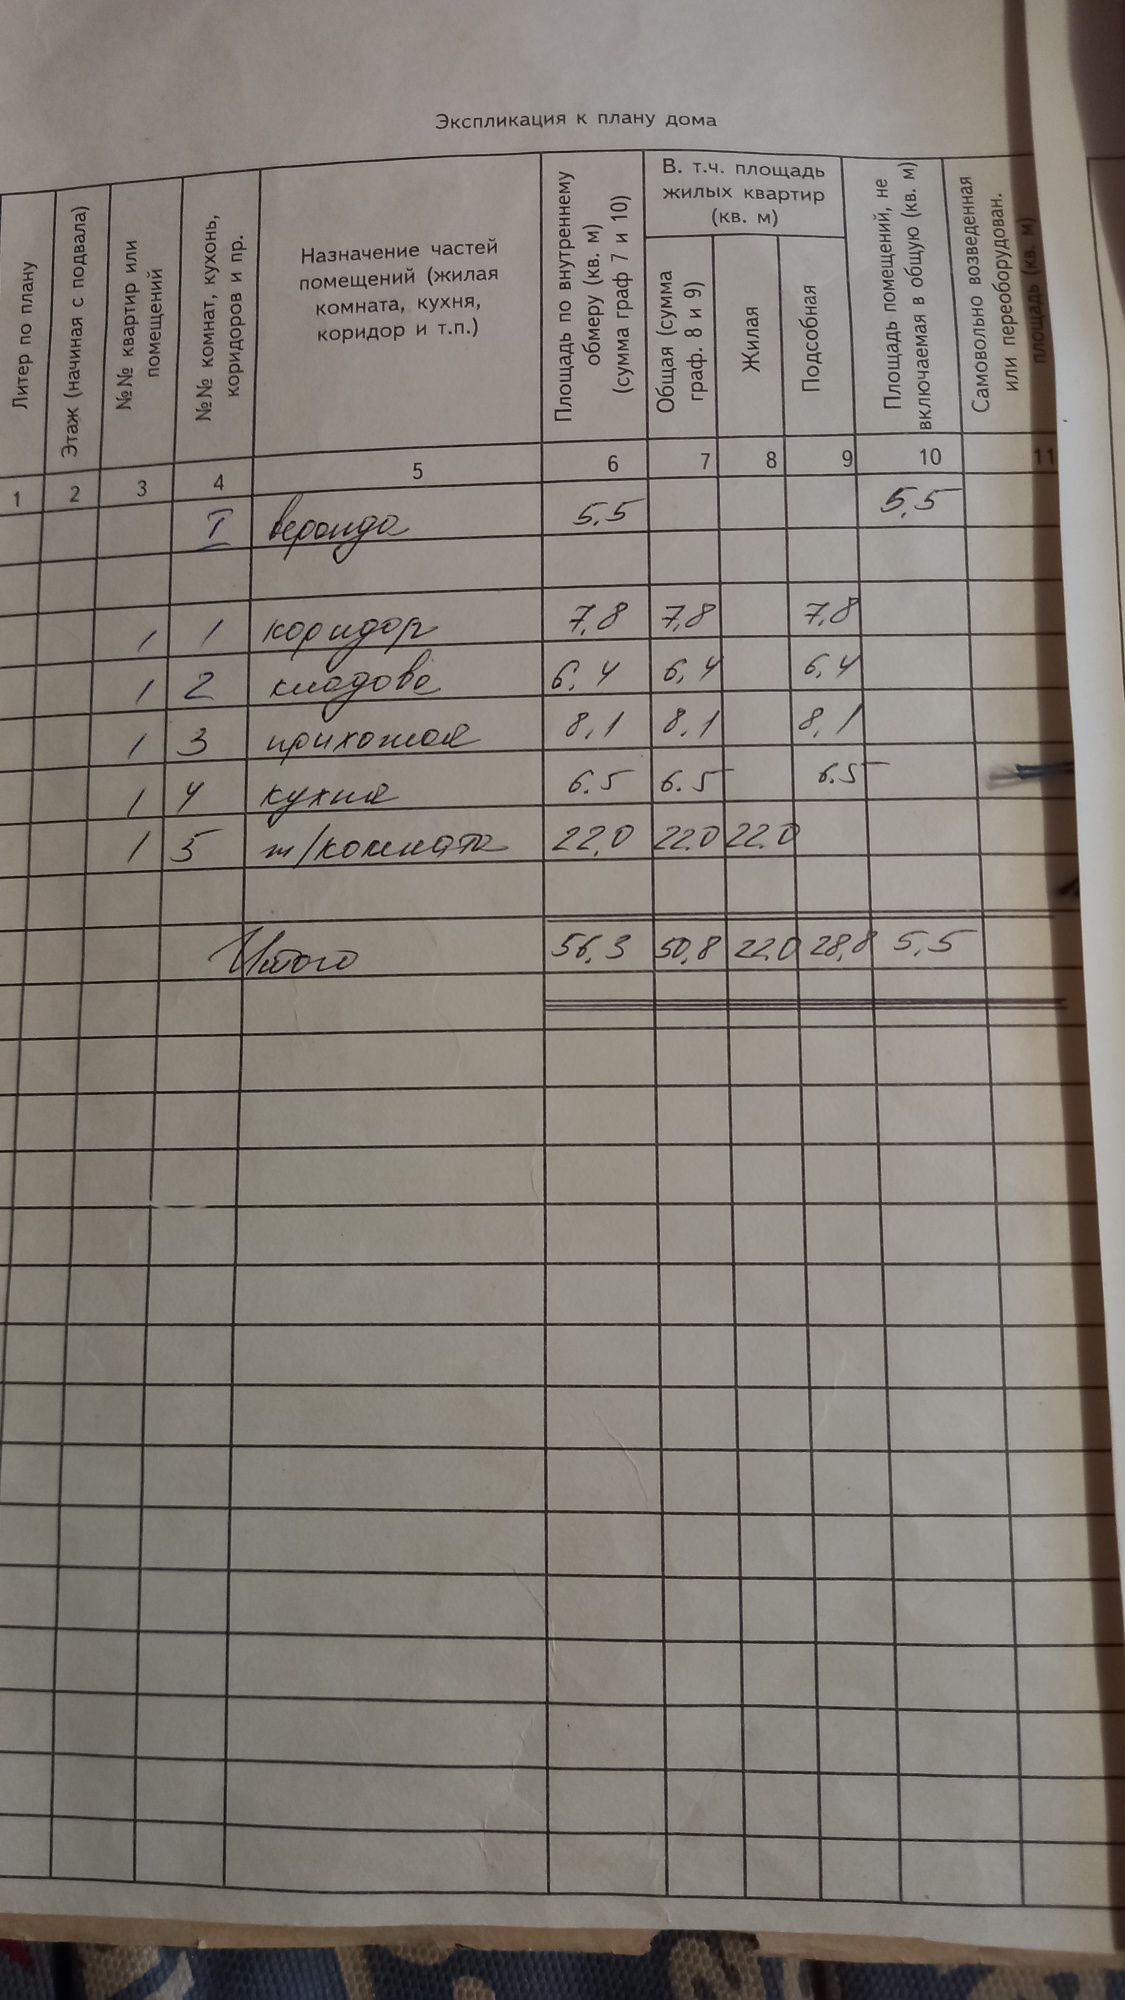 Экспликация к плану дома
Литер по плану
Этаж (начиная с подвала)
№№ квартир или
помещений
№№ комнат, кухонь,
коридоров и пр.
Назначение частей
помещений (жилая
комната, кухня,
коридор и т.п.)
Площадь по внутреннему
обмеру (кв. м)
(сумма граф 7 и 10)
В. т.ч. площадь
жилых квартир
(кв. м)
Общая (сумма
граф. 8 и 9)
Жилая
Подсобная
Площадь помещений, не
включаемая в общую (кв. м)
Самовольно возведенная
или переоборудован.
площадь (кв. м)
1 2 3 4 5 6 7 8 9 10 11
I веранда 5,5 5,5
1 1 коридор 7,8 7,8 7,8
1 2 кладова 6,4 6,4 6,4
1 3 прихожая 8,1 8,1 8,1
1 4 кухня 6.5 6.5 6.5
1 5 ж/комната 22,0 22.0 22.0
Итого 56,3 50,8 22,0 28,8 5,5